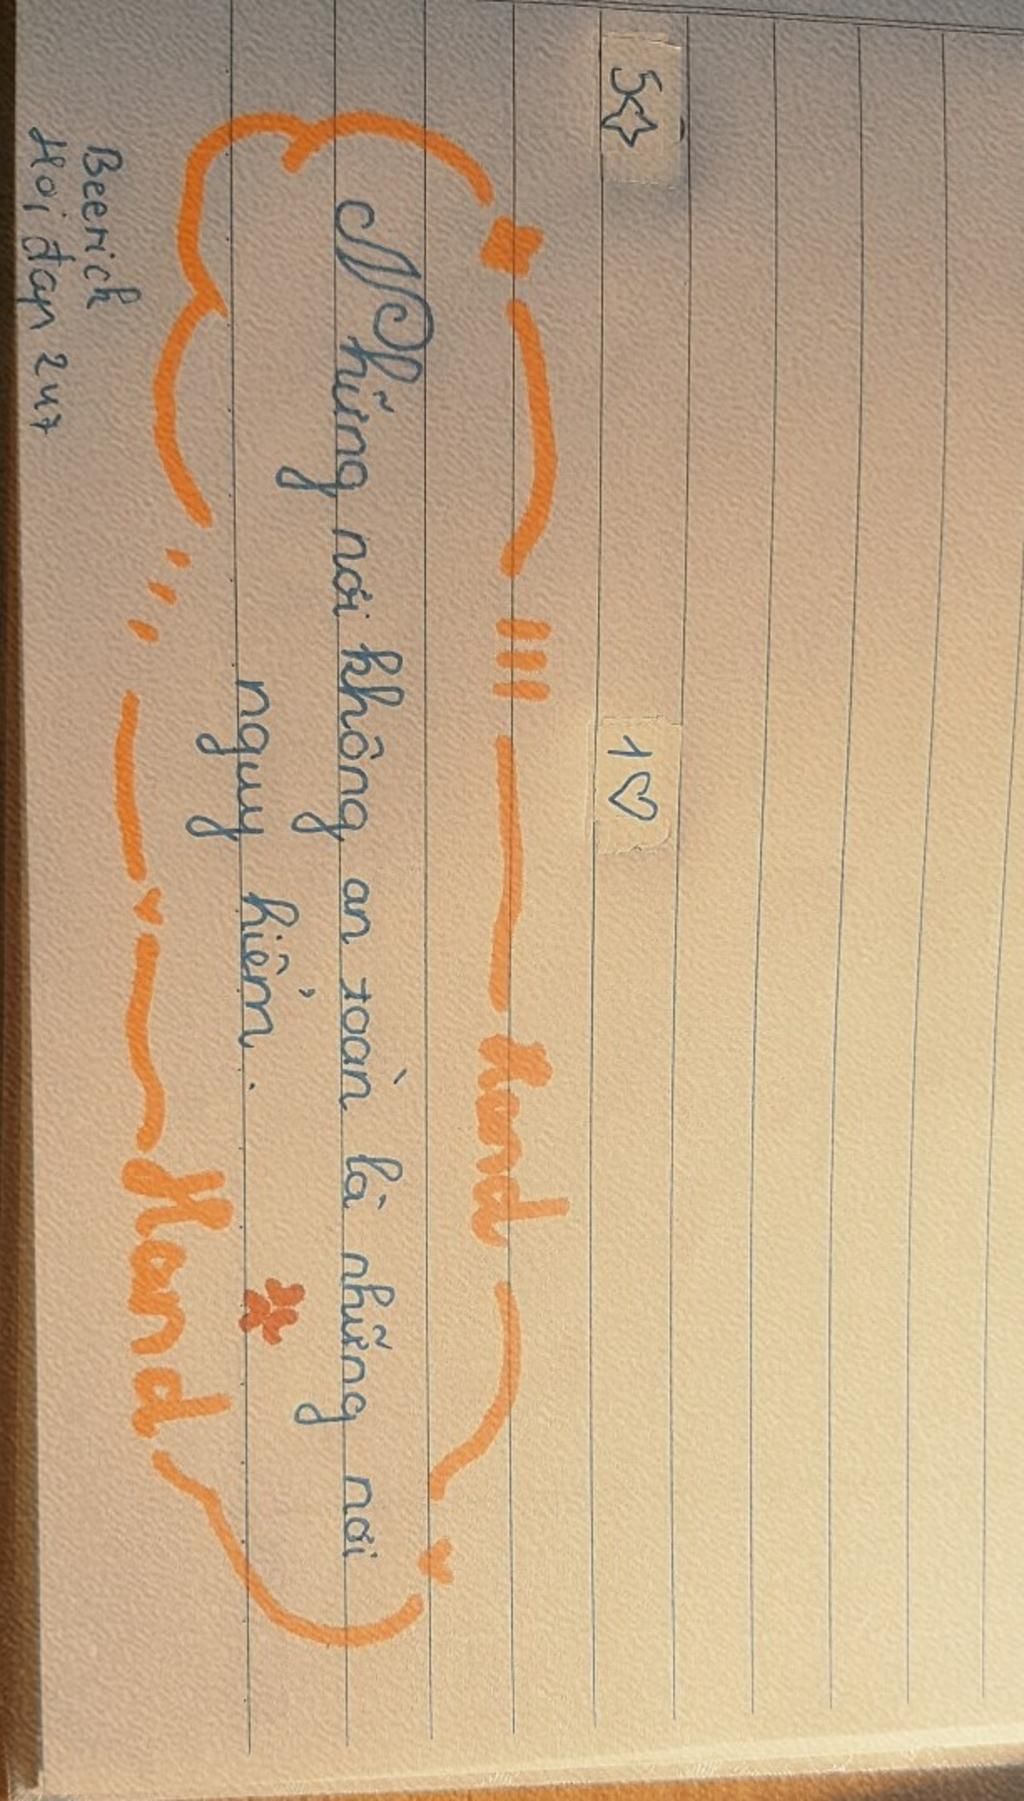 5☆
1♡
Hand
Những nơi không an toàn là những nơi
nguy hiểm.
Hand
Beerich
Hỏi đáp 247